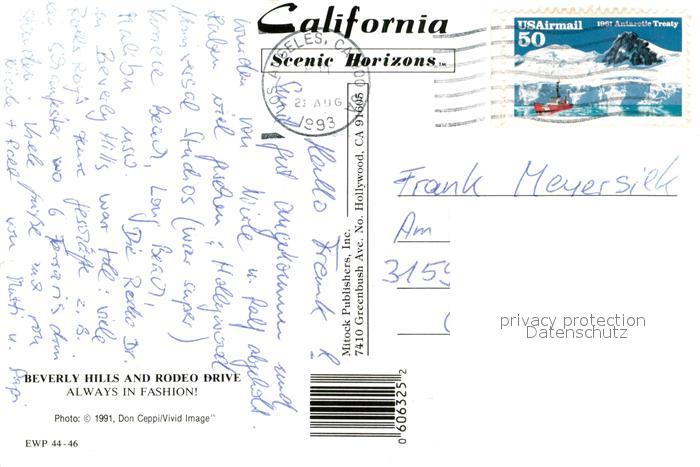 California
Scenic Horizons™
LOS ANGELES, CA 900
23 AUG
1993
USAirmail
1961 Antarctic Treaty
50
Hallo Frank R
Sind gut angekommen und
wurden von Nicole u. Ralf abgeholt.
Haben viel gesehen: Hollywood
Universal Studios (war super)
Venice Beach, Long Beach,
Malibu usw. Die Rodeo Dr.
in Beverly Hills war toll: viele
Geschäfte z.B.
wo 6 Ferraris drin
Viele Grüße aus von
Nicole + Ralf von Mutti u. Papi
Mitock Publishers, Inc.
7410 Greenbush Ave. No. Hollywood, CA 91605
Frank Meyersiek
Am
3159
privacy protection
Datenschutz
BEVERLY HILLS AND RODEO DRIVE
ALWAYS IN FASHION!
Photo: © 1991, Don Ceppi/Vivid Image™
EWP 44-46
0 606325 2